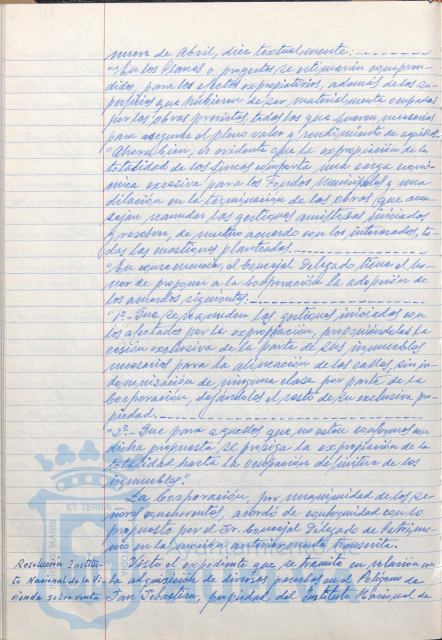 nueve de Abril, dice textualmente:
"En los Planos o proyectos se estimarán compren-
didos, para los efectos expropiatorios, además de las su-
perficies que hubieren de ser materialmente ocupadas
por las obras previstas, todas las que fueren necesarias
para asegurar el pleno valor y rendimiento de aquéllas.
"Ahora bien, es evidente que la expropiación de la
totalidad de las fincas comporta una carga econó-
mica excesiva para los Fondos Municipales y una
dilación en la terminación de las obras, que acon-
sejan reanudar las gestiones amistosas iniciadas
y resolver, de mutuo acuerdo con los interesados, to-
das las cuestiones planteadas.
"En consecuencia, el Concejal Delegado tiene el ho-
nor de proponer a la Corporación la adopción de
los acuerdos siguientes:
"1º.- Que se reanuden las gestiones iniciadas con
los afectados por la expropiación, proponiéndoles la
cesión exclusiva de la parte de sus inmuebles
necesarios para la alineación de las calles, sin in-
demnización de ninguna clase por parte de la
Corporación, dejándoles el resto de su exclusiva pro-
piedad.
"2º.- Que para aquellos que no estén conformes con
dicha propuesta se prosiga la expropiación de la
totalidad hasta la ocupación definitiva de los
inmuebles".
La Corporación, por unanimidad de los se-
ñores concurrentes, acordó de conformidad con lo
propuesto por el Sr. Concejal Delegado de Patrimo-
nio en la moción anteriormente transcrita.
Resolución Institu-
to Nacional de la Vi-
vienda sobre venta
Visto el expediente que se tramita en relación con
la adquisición de diversas parcelas en el Polígono de
San Sebastián, propiedad del Instituto Nacional de
ET TERRA